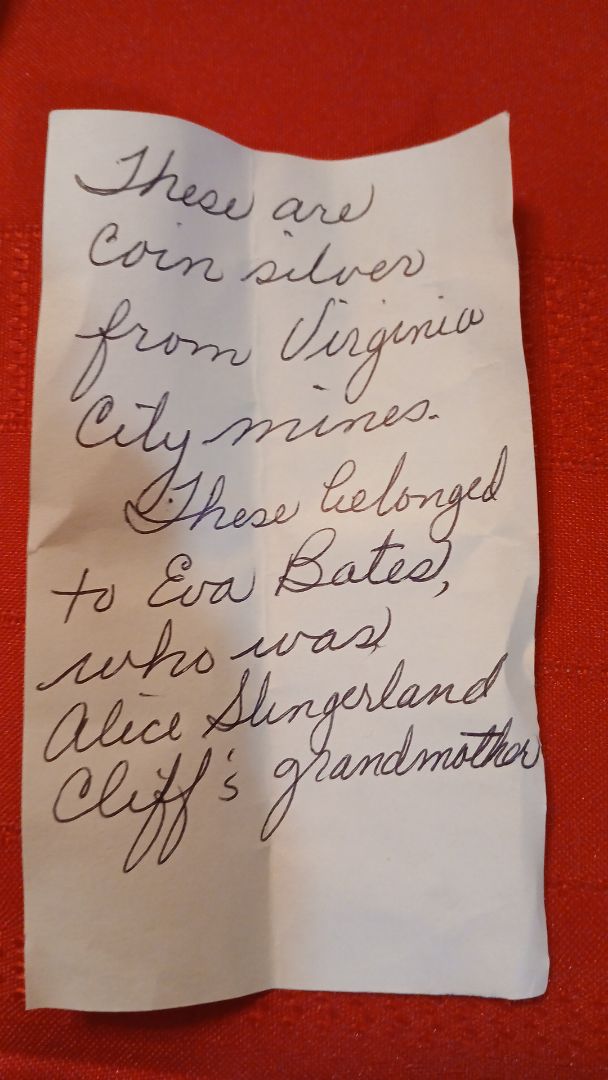 These are
Coin silver
from Virginia
City mines.
These belonged
to Eva Bates,
who was
Alice Slingerland
Cliff's grandmother